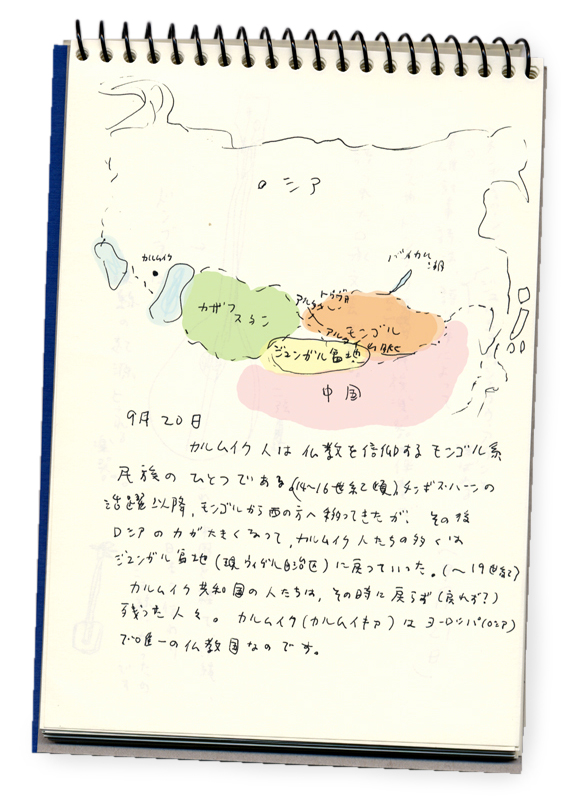 ロシア
カルムイク
バイカル湖
トゥヴァ
アルタイ
カザフスタン
モンゴル
アルタイ山脈
ジュンガル盆地
中国
9月20日
カルムイク人は仏教を信仰するモンゴル系
民族のひとつである。(14〜16世紀頃)チンギス・ハーンの
活躍以降、モンゴルから西の方へ移ってきたが、その後
ロシアの力が大きくなって、カルムイク人たちの多くは
ジュンガル盆地(現ウイグル自治区)に戻っていった。(〜19世紀)
カルムイク共和国の人たちは、その時に戻らず(戻れず?)
残った人々。カルムイク(カルムイキア)はヨーロッパ(ロシア)
で唯一の仏教国なのです。